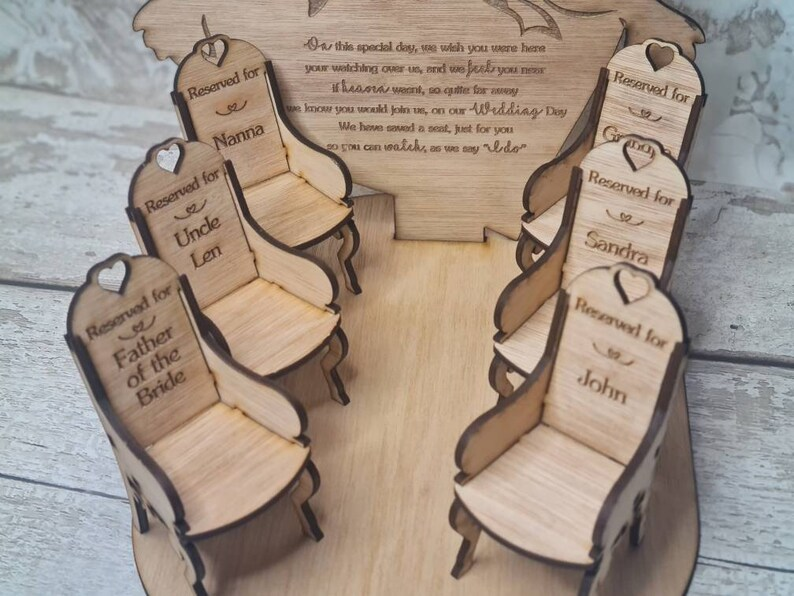 On this special day, we wish you were here
your watching over us, and we feel you near
if heaven wasnt, so quite far away
we know you would join us, on our Wedding Day
We have saved a seat, just for you
so you can watch, as we say "I do"
Reserved for
Nanna
Reserved for
Uncle
Len
Reserved for
Father
of the
Bride
Reserved for
Reserved for
Sandra
Reserved for
John